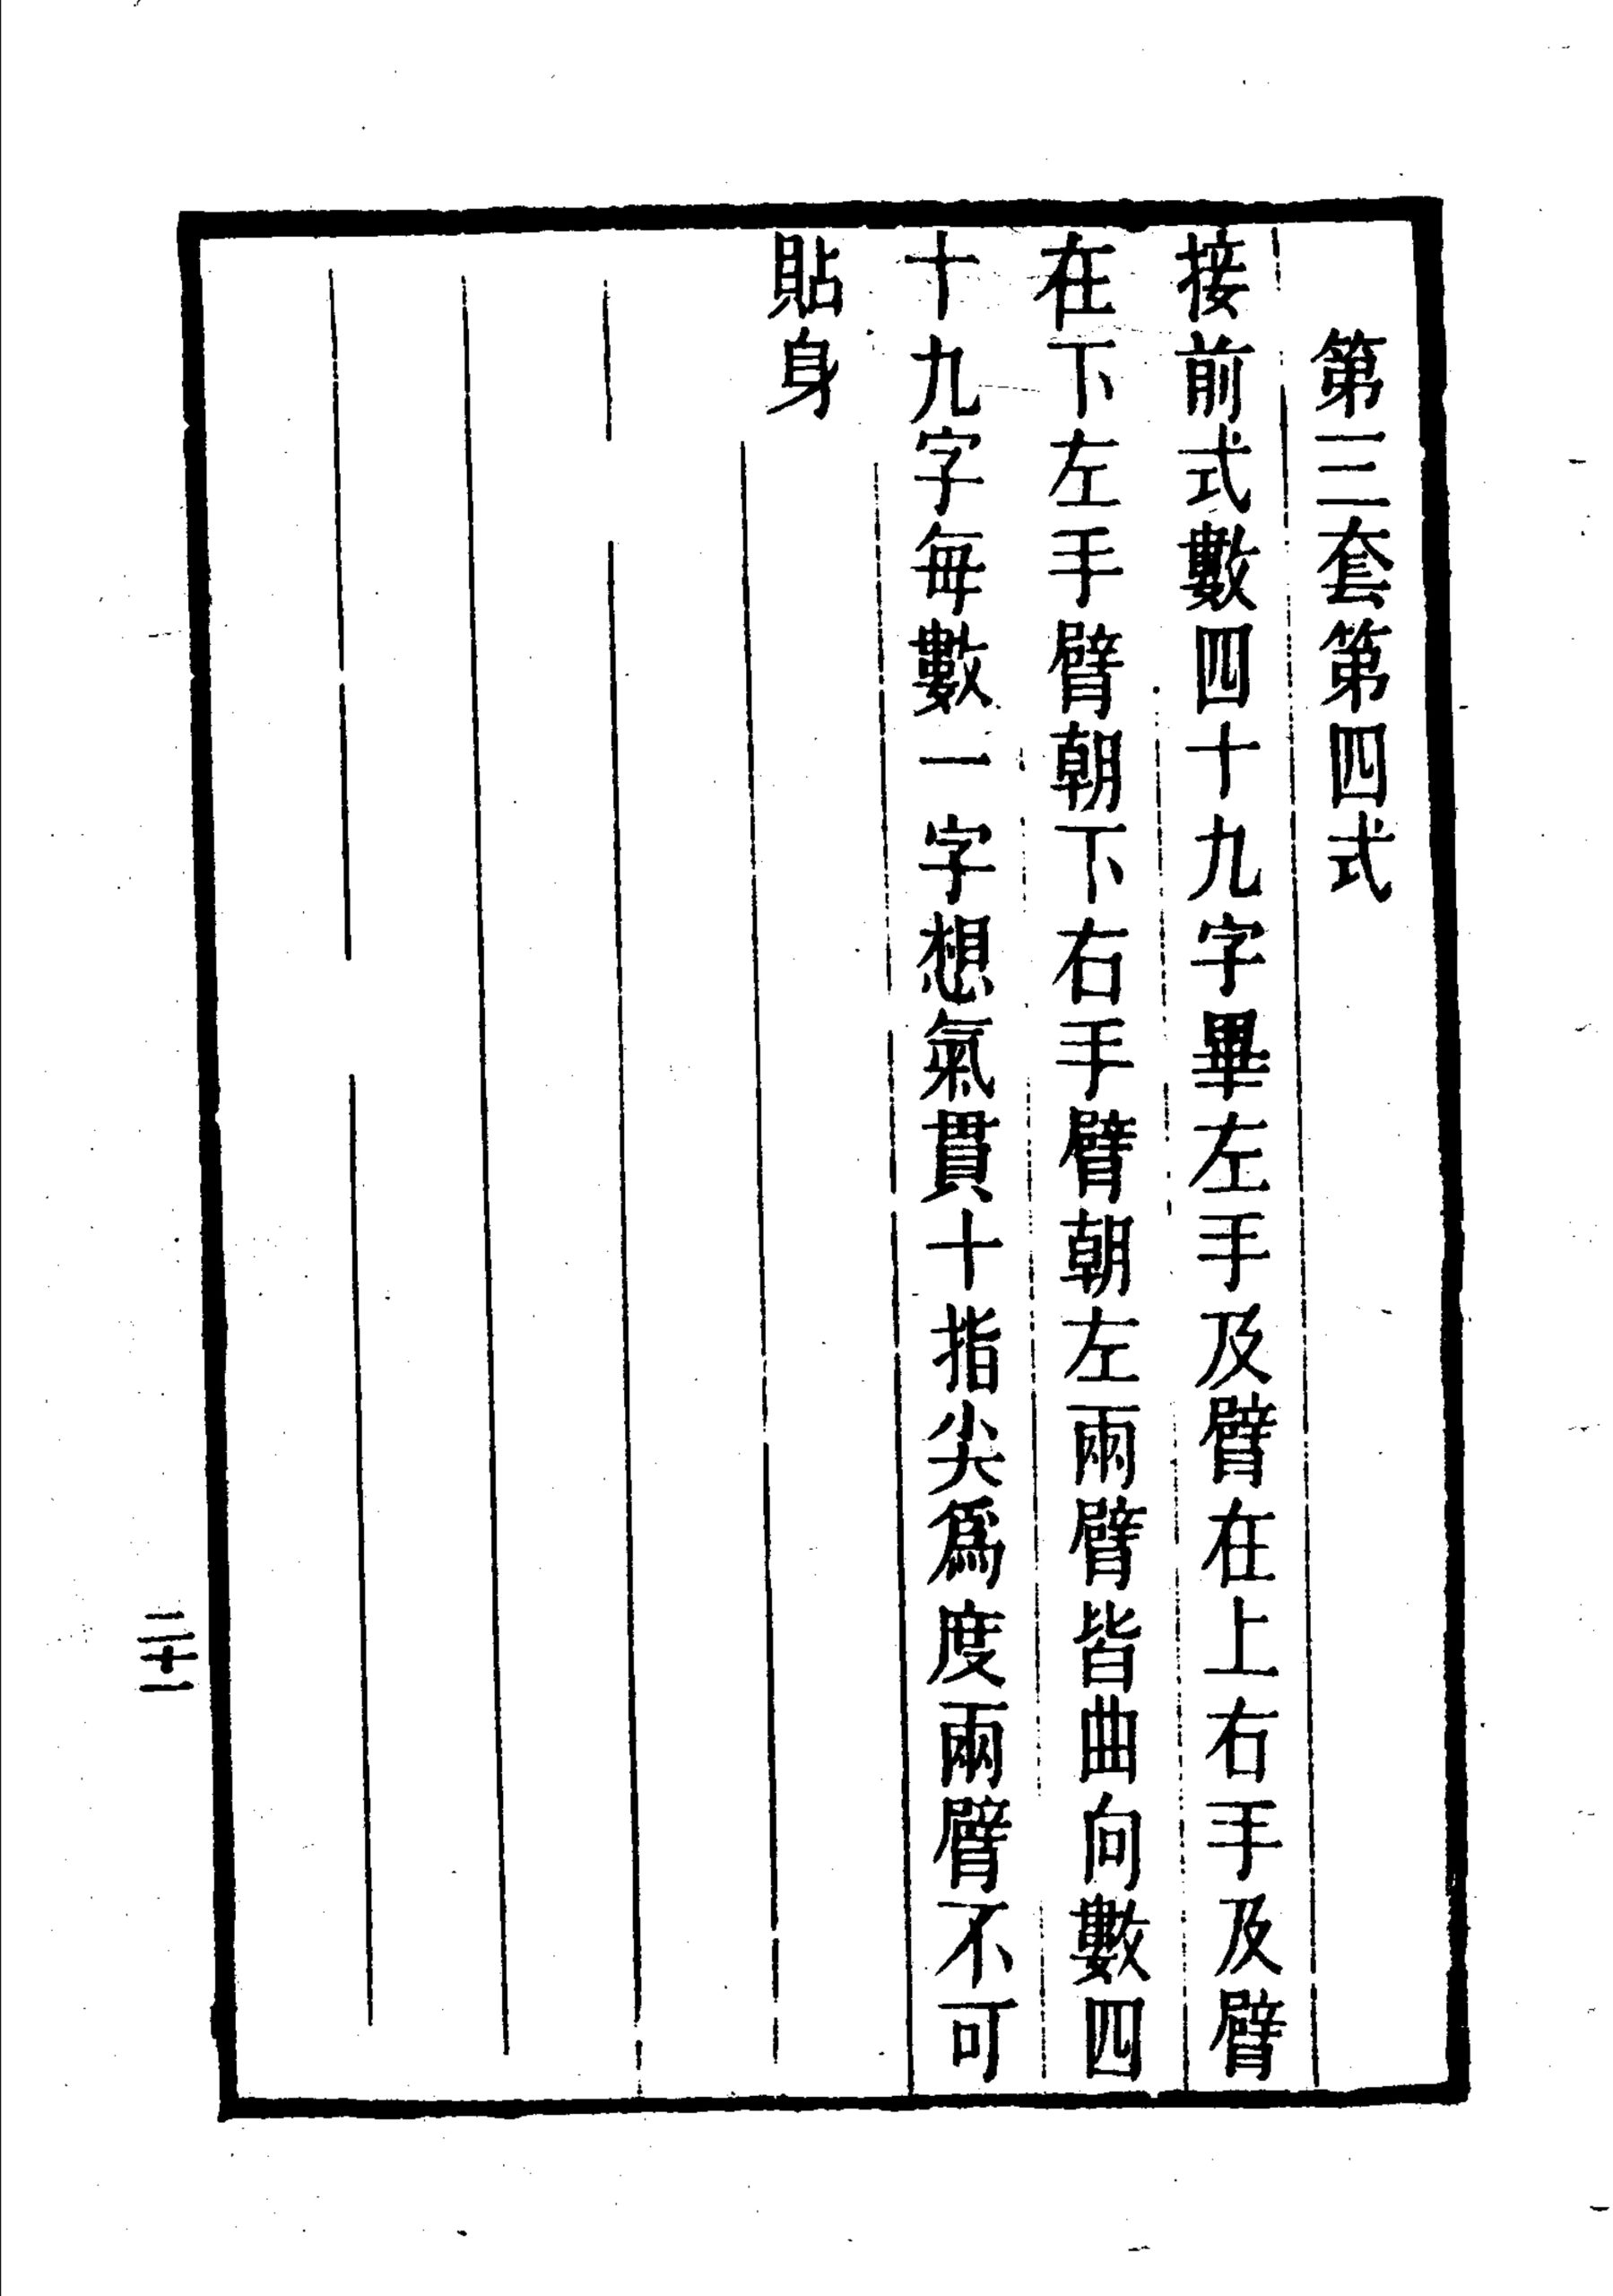 第三套第四式
接前式數四十九字畢左手及臂在上右手及臂
在下左手臂朝下右手臂朝左兩臂皆曲向數四
十九字每數一字想氣貫十指尖爲度兩臂不可
貼身
三十一